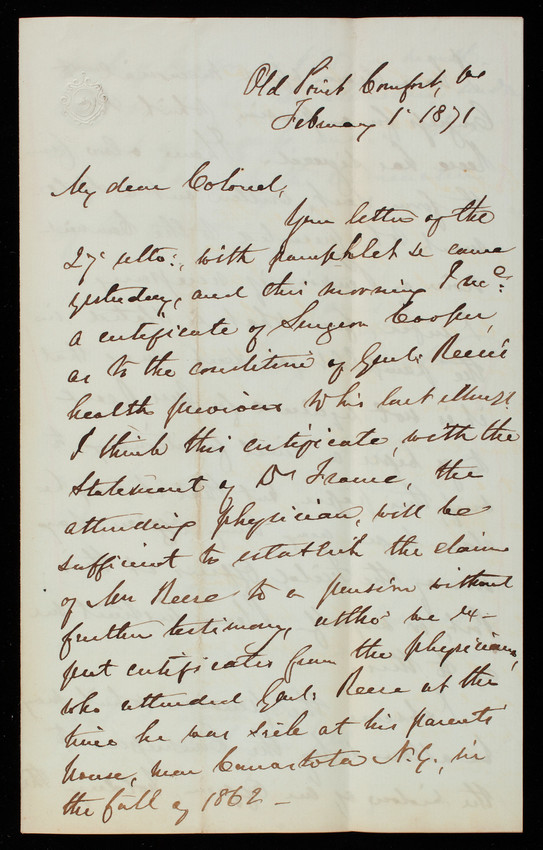 Old Point Comfort, Va
February 1st 1871
My dear Colonel,
Your letter of the
27th ulto:, with pamphlet &c came
yesterday, and this morning I recd:
a certificate of Surgeon Cooper,
as to the condition of Genl: Reese's
health previous to his last illness.
I think this certificate, with the
statement of Dr Frame, the
attending physician, will be
sufficient to establish the claim
of Mrs Reese to a pension without
further testimony, altho' we ex-
pect certificates from the physicians,
who attended Genl: Reese at the
time he was sick at his parents'
house, near Canastota N.Y., in
the fall of 1862 —